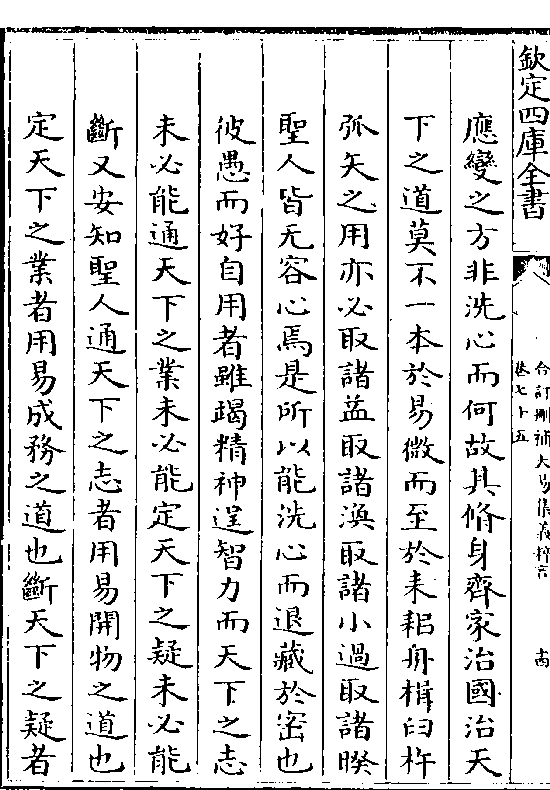 欽定四庫全書
合訂刪補大易集義粹言
卷七十五
應變之方非洗心而何故其脩身齊家治國治天
下之道莫不一本於易微而至於耒耜舟楫臼杵
弧矢之用亦必取諸益取諸渙取諸小過取諸暌
聖人皆无容心焉是所以能洗心而退藏於密也
彼愚而好自用者雖竭精神逞智力而天下之志
未必能通天下之業未必能定天下之疑未必能
斷又安知聖人通天下之志者用易開物之道也
定天下之業者用易成務之道也斷天下之疑者